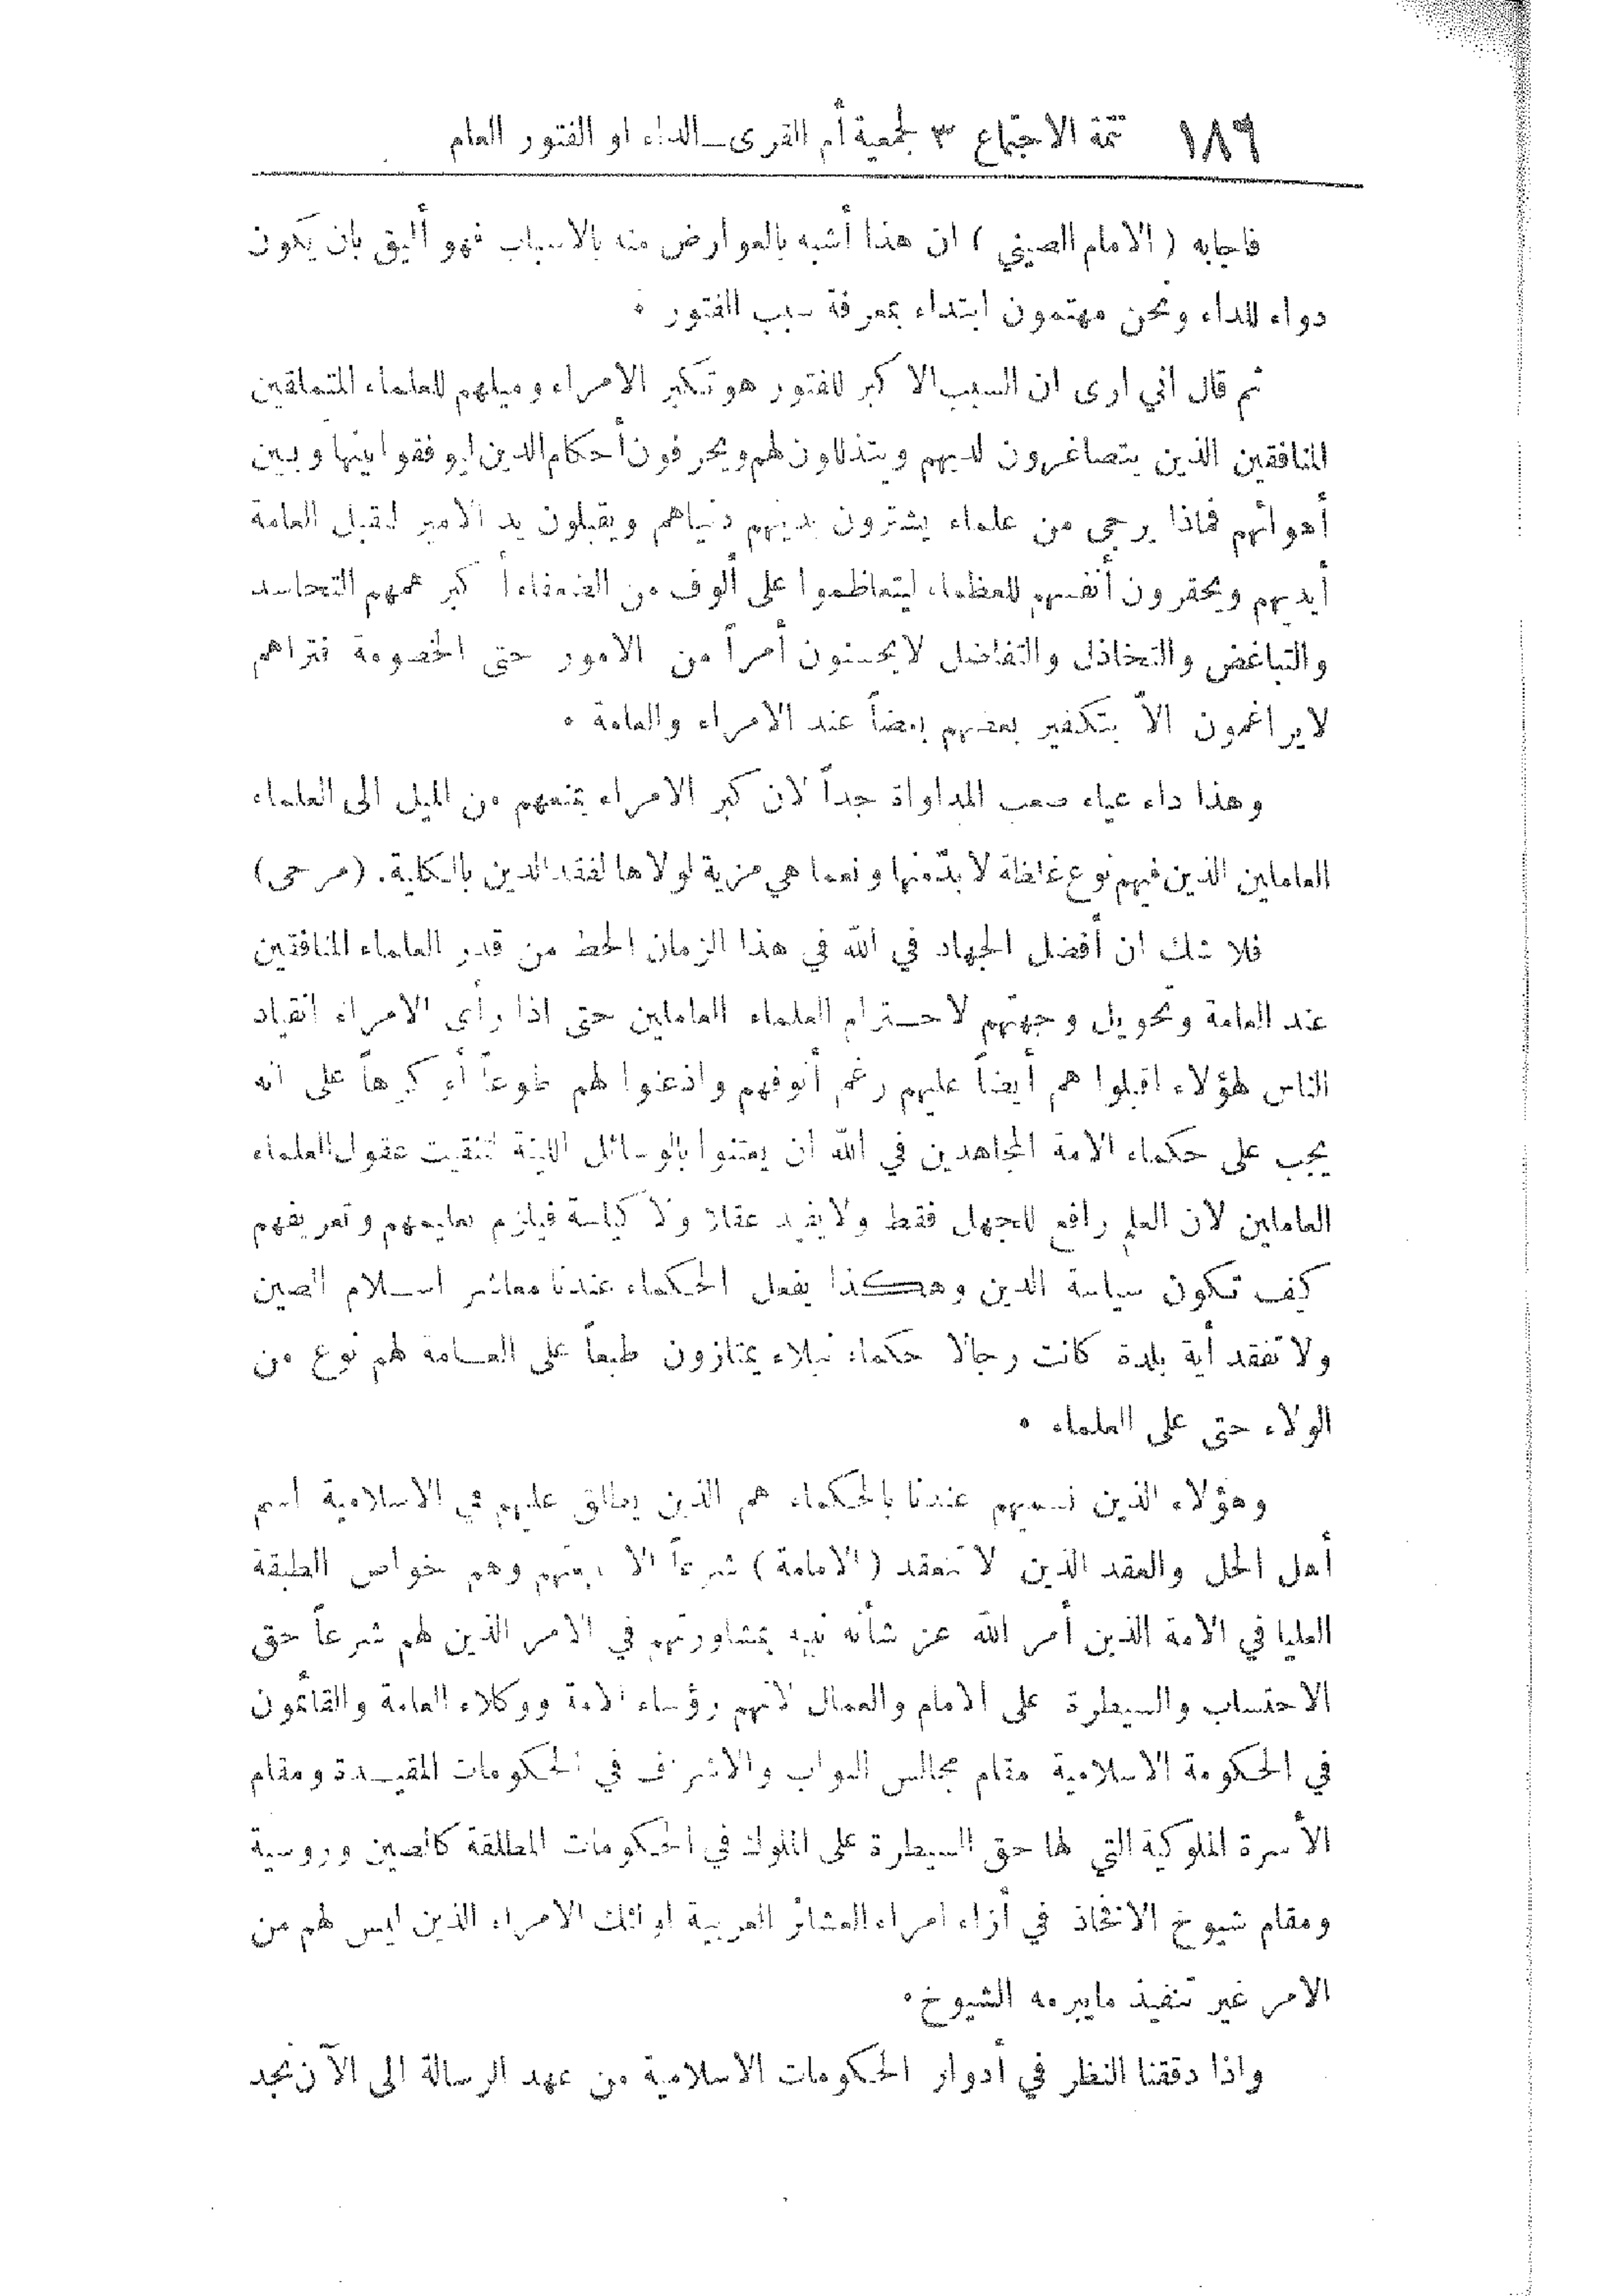 ١٨٦ تتمة الاجتماع ٣ لجمعية أم القرى ــ الداء او الفتور العام
فاجابه ( الامام الصيني ) ان هذا أشبه بالعوارض منه بالاسباب فهو أليق بان يكون
دواء للداء ونحن مهتمون ابتداء بمعرفة سبب الفتور ٠
ثم قال اني ارى ان السبب الاكبر للفتور هو تكبر الامراء وميلهم للعلماء المتملقين
المنافقين الذين يتصاغرون لديهم ويتذللون لهم ويحرفون أحكام الدين ليوفقوا بينها وبين
أهوائهم فماذا يرجى من علماء يشترون بدينهم دنياهم ويقبلون يد الامير لتقبل العامة
أيديهم ويحقرون أنفسهم للعظماء ليتعاظموا على ألوف من الضعفاء أكبر همهم التحاسد
والتباغض والتخاذل والتفاضل لا يحسنون أمراً من الامور حتى الخصومة فتراهم
لا يراغمون الاّ بتكفير بعضهم بعضاً عند الامراء والعامة ٠
وهذا داء عياء صعب المداواة جداً لان كبر الامراء يمنعهم من الميل الى العلماء
العاملين الذين فيهم نوع غلظة لا بدّ منها ونعما هي مزية لولاها لفقد الدين بالكلية. (مرحى)
فلا شك ان أفضل الجهاد في الله في هذا الزمان الحط من قدر العلماء المنافقين
عند العامة وتحويل وجهتهم لاحـترام العلماء العاملين حتى اذا رأى الامراء انقياد
الناس لهؤلاء اقبلوا هم أيضاً عليهم رغم أنوفهم واذعنوا لهم طوعاً أو كرهاً على انه
يجب على حكماء الامة المجاهدين في الله ان يعتنوا بالوسائل اللينة لتثقيف عقول العلماء
العاملين لان العلم رافع للجهل فقط ولا يفيد عقلا ولا كياسة فيلزم تعليمهم وتعريفهم
كيف تكون سياسة الدين وهكـذا يفعل الحكماء عندنا معاشر اسـلام الصين
ولا تفقد أية بلدة كانت رجالا حكماء نبلاء يمتازون طبعاً على العـامة لهم نوع من
الولاء حتى على العلماء ٠
وهؤلاء الذين نسميهم عندنا بالحكماء هم الذين يطلق عليهم في الاسلامية اسم
أهل الحل والعقد الذين لا تنعقد ( الامامة ) شرعاً الا ببيعتهم وهم خواص الطبقة
العليا في الامة الذين أمر الله عز شأنه نبيه بمشاورتهم في الامر الذين لهم شرعاً حق
الاحتساب والسيطرة على الامام والعمال لانهم رؤساء الامة ووكلاء العامة والقائمون
في الحكومة الاسلامية مقام مجالس النواب والاشراف في الحكومات المقيـدة ومقام
الأسرة الملوكية التي لها حق السيطرة على الملوك في الحكومات المطلقة كالصين وروسية
ومقام شيوخ الافخاذ في أزاء امراء العشائر العربية اولئك الامراء الذين ليس لهم من
الامر غير تنفيذ ما يبرمه الشيوخ ٠
واذا دققنا النظر في أدوار الحكومات الاسلامية من عهد الرسالة الى الآن نجد